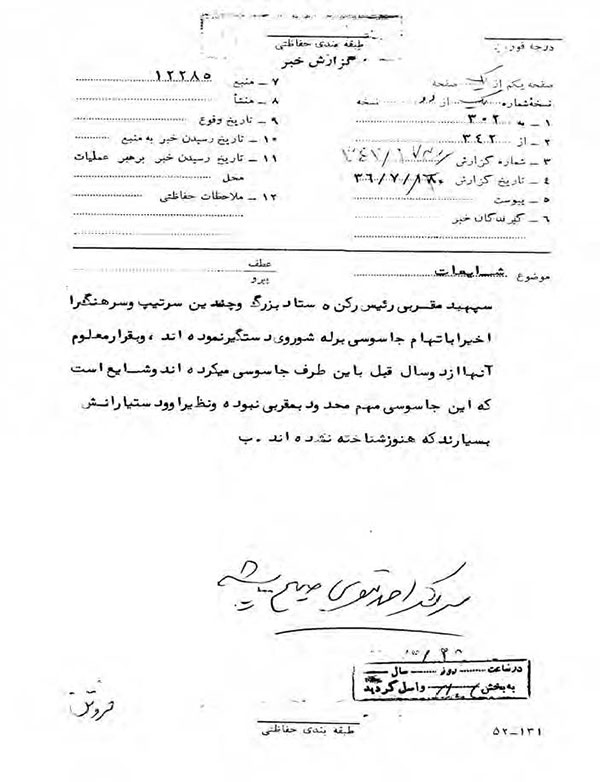 درجه فوریت
طبقه بندی حفاظتی
گزارش خبر
صفحه یکم از یک صفحه
نسخه شماره یک از دو نسخه
۱ – به ۳۰۲
۲ – از ۳۴۲
۳ – شماره گزارش
۴ – تاریخ گزارش ۳۶/۷/
۵ – پیوست
۶ – گیرندگان خبر
۷ – منبع ۱۲۲۸۵
۸ – منشأ
۹ – تاریخ وقوع
۱۰ – تاریخ رسیدن خبر به منبع
۱۱ – تاریخ رسیدن خبر برهبر عملیات
محل
۱۲ – ملاحظات حفاظتی
موضوع شایعات
عطف
پیرو
سپهبد مقربی رئیس رکن ۵ ستاد بزرگ وچندین سرتیپ وسرهنگ را
اخیرا باتهام جاسوسی برله شوروی دستگیر نموده اند ، وبقرار معلوم
آنها از دوسال قبل باین طرف جاسوسی میکرده اند وشایع است
که این جاسوسی مهم محدود بمقربی نبوده ونظیر او ودستیارانش
بسیارند که هنوز شناخته نشده اند . ب
در ساعت روز سال
به بخش واصل گردید
طبقه بندی حفاظتی
۵۲–۱۳۱